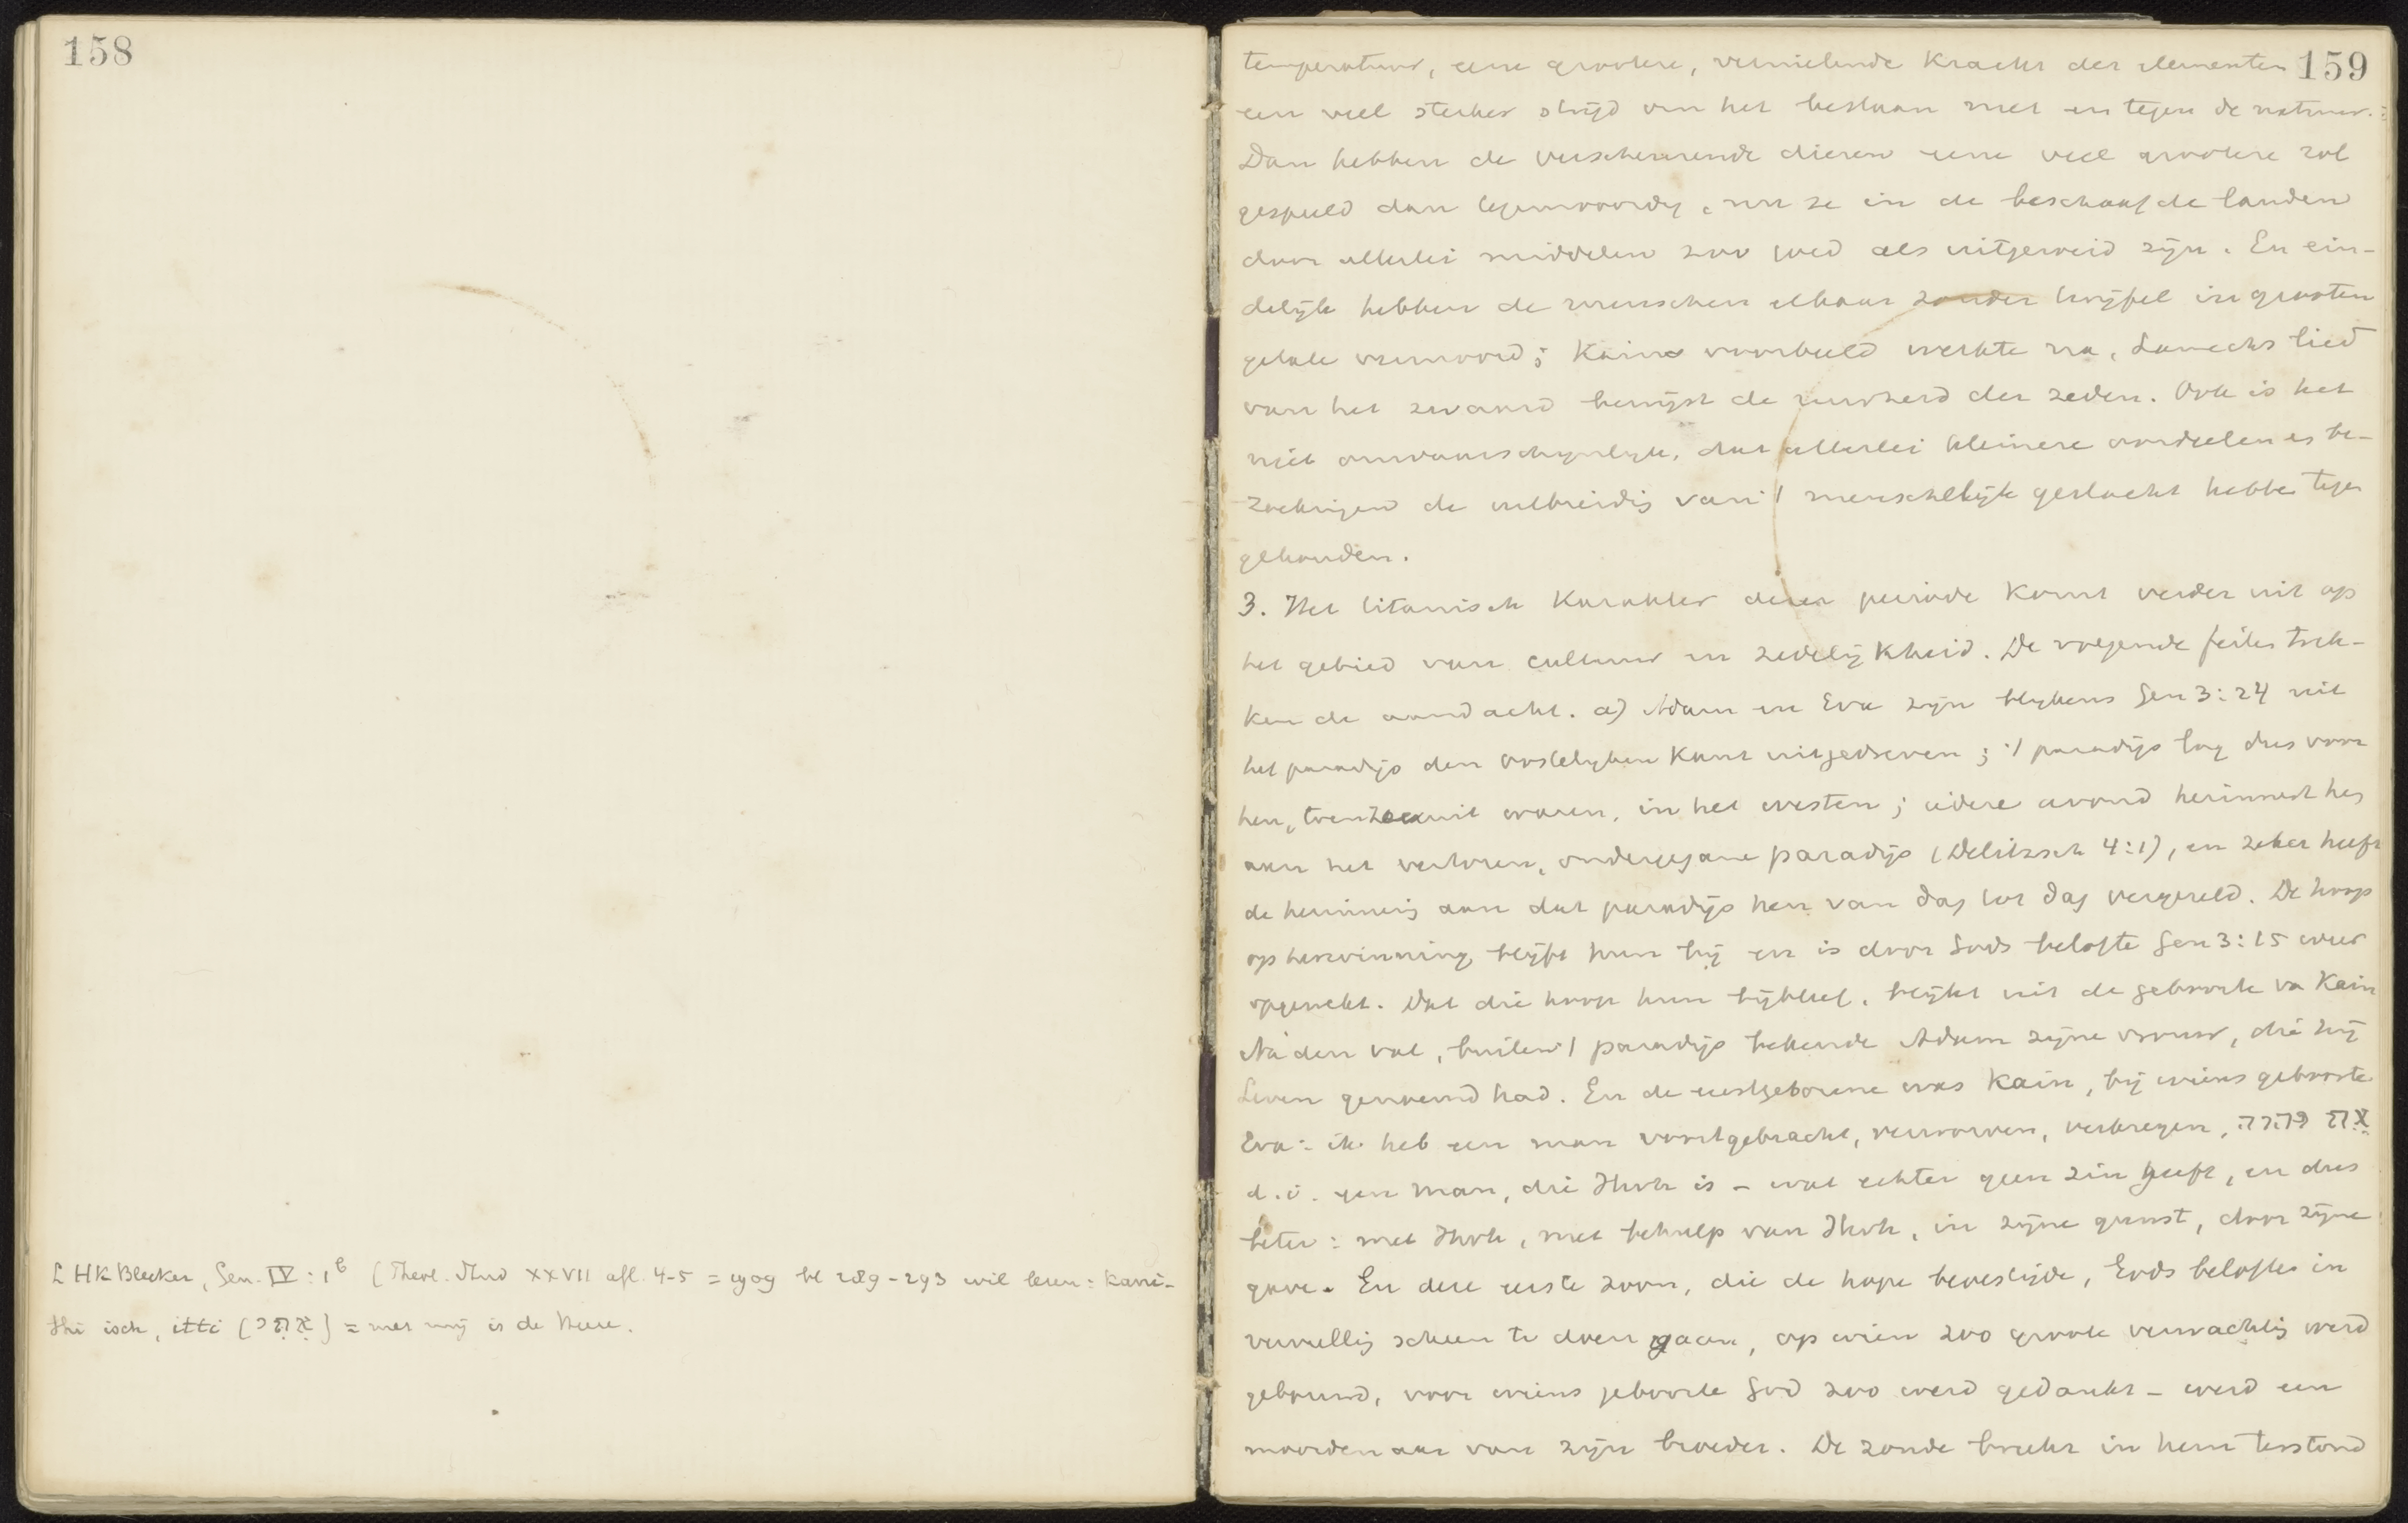 158
L HK Bleeker, Gen. IV : 1b (Theol. Stud XXVII afl. 4-5 = 1909 bl 289-293 wil lezen: kani-
thi isch, itti (אִתִּי) = met mij is de Heere.
159
temperatuur, eene grootere, vernielende kracht der elementen
een veel sterker strijd om het bestaan met en tegen de natuur.
Dan hebben de verscheurende dieren eene veel grootere rol
gespeeld dan tegenwoordig, nu ze in de beschaafde landen
door allerlei middelen zoo goed als uitgeroeid zijn. En ein-
delijk hebben de menschen elkaar zonder twijfel in grooten
getale vermoord; Kains voorbeeld werkte na, Lamechs lied
van het zwaard bewijst de ruwheid der zeden. Ook is het
niet onwaarschijnlijk, dat allerlei kleinere oordeelen en be-
zoekingen de uitbreidig van 't menschelijk geslacht hebbe tegen
gehouden.
3. Het titanisch karakter dezer periode komt verder uit op
het gebied van cultuur en zedelijkheid. De volgende feiten trek-
ken de aandacht. a) Adam en Eva zijn blijkens Gen 3:24 uit
het paradijs den oostelijken kant uitgedreven; 't paradijs lag dus voor
hen, toen ze eruit waren, in het westen; iedere avond herinnert hen
aan het verloren, ondergegane paradijs (Delitzsch 4:1), en zeker heeft
de herinnerig aan dat paradijs hen van dag tot dag vergezeld. De hoop
op herwinning blijft hun bij en is door Gods belofte Gen 3:15 weer
opgewekt. Dat die hoop hun bijbleef, blijkt uit de geboorte va Kain
Na den val, buiten 't paradijs bekende Adam zijne vrouw, die hij
Leven genoemd had. En de eerstgeborene was Kain, bij wiens geboorte
Eva: ik heb een man voortgebracht, verworven, verkregen, אֶת יהוה
d.i. een man, die Jhvh is – wat echter geen zin heeft, en dus
beter: met Jhvh, met behulp van Jhvh, in zijne gunst, door zijne
gave. En deze eerste zoon, die de hope bevestigde, Gods beloften in
vervullig scheen te doen gaan, op wien zoo groote verwachtig werd
gebouwd, voor wiens geboorte God zoo werd gedankt – werd een
moordenaar van zijn broeder. De zonde breekt in hem terstond